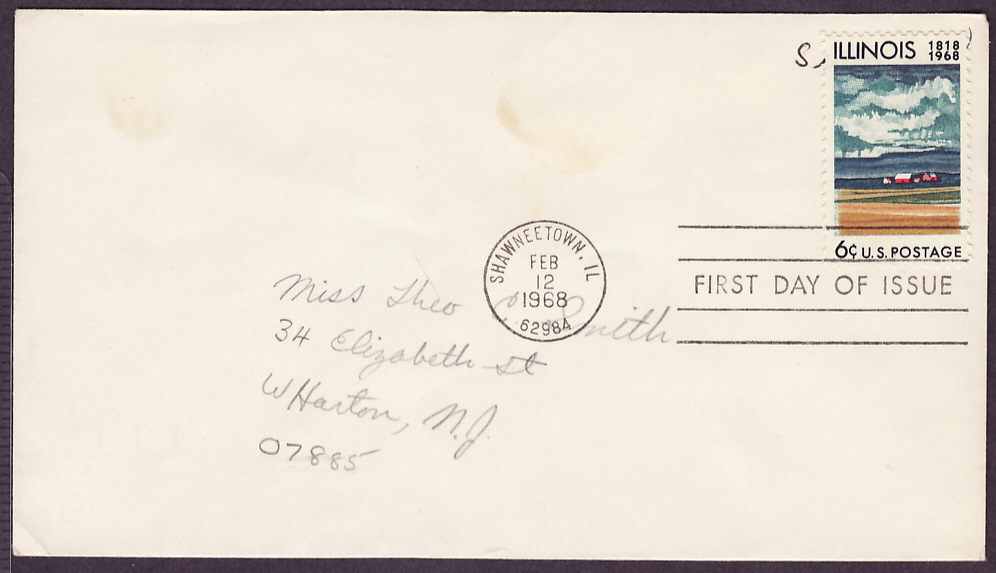 ILLINOIS 1818 1968
6¢ U.S. POSTAGE
SHAWNEETOWN, IL
FEB
12
1968
62984
FIRST DAY OF ISSUE
Miss Theo Smith
34 Elizabeth St
WHarton, N.J.
07885